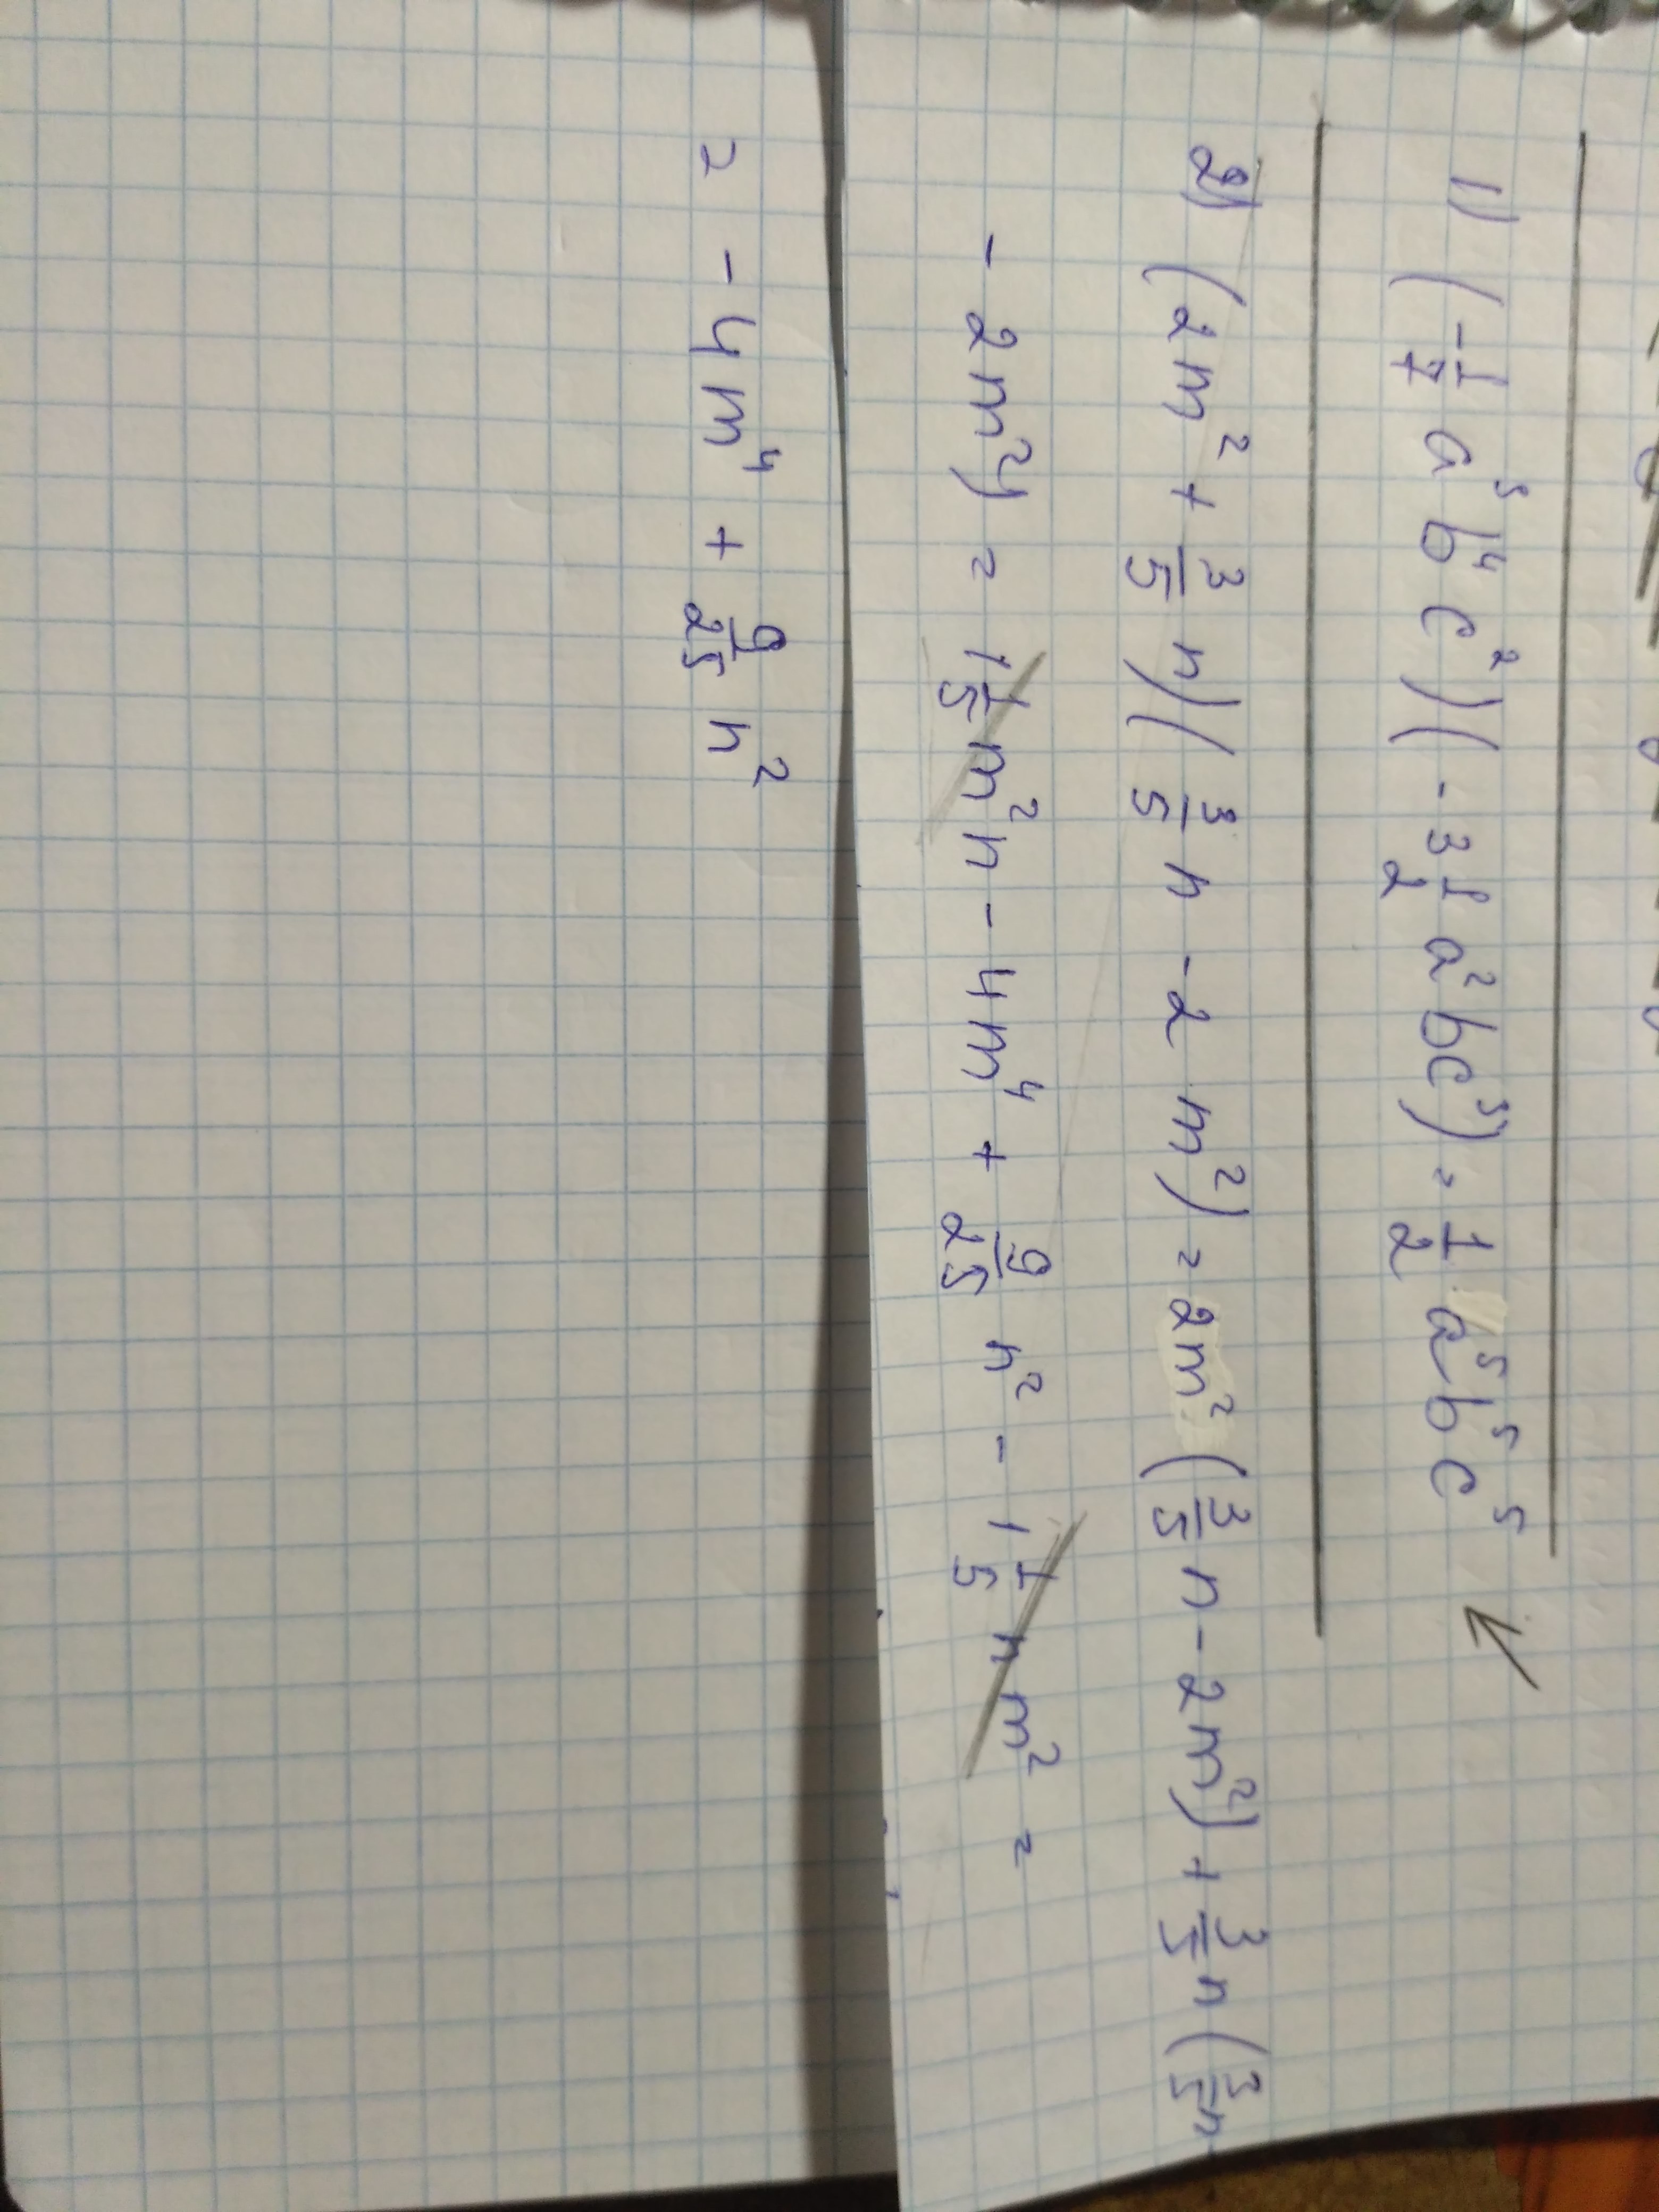 1) (-1/7 a³b⁴c²)(-3 1/2 a²bc³) = 1/2 a⁵b⁵c⁵
2) (2m² + 3/5 n)(3/5 n - 2m²) = 2m² (3/5 n - 2m²) + 3/5 n (3/5 n
- 2m²) = 1 1/5 m²n - 4m⁴ + 9/25 n² - 1 1/5 n m² =
= - 4m⁴ + 9/25 n²